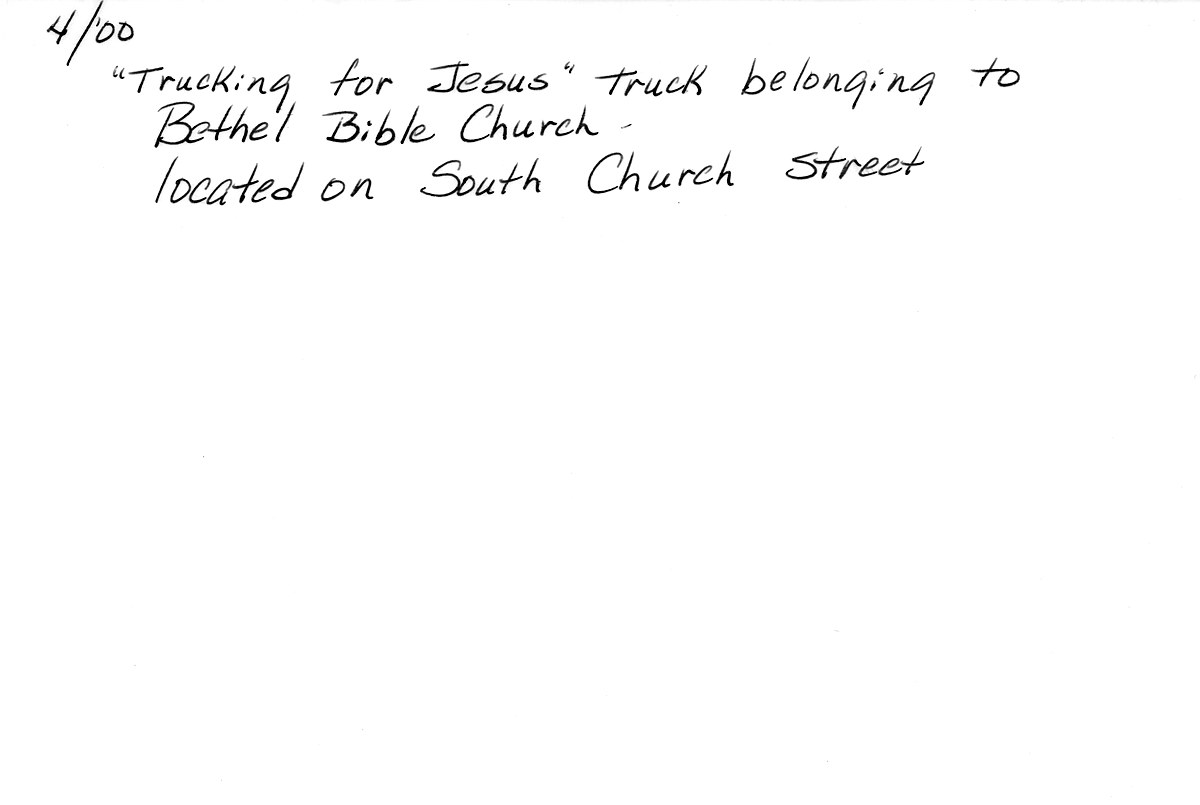 4/'00
"Trucking for Jesus" truck belonging to
Bethel Bible Church -
located on South Church Street